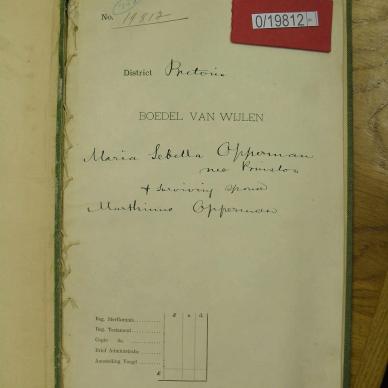 No. 19812
0/19812
District Pretoria
BOEDEL VAN WIJLEN
Maria Sebella Opperman
nee
& Surviving Spouse
Marthinus Opperman
£ s. d.
Reg. Sterfkennis
Reg. Testament
Copie do.
Brief Administratie
Aanstelling Voogd
£